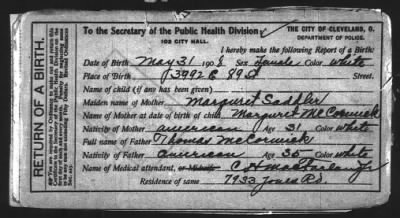 To the Secretary of the Public Health Division
102 CITY HALL.
THE CITY OF CLEVELAND, O.
DEPARTMENT OF POLICE.
I hereby make the following Report of a Birth:
Date of Birth May 31 1908 Sex Female Color White
Place of Birth 3992 E 89 St Street.
Name of child (if any has been given)
Maiden name of Mother Margaret Saddler
Name of Mother at date of birth of child Margaret McCormick
Nativity of Mother American Age 31 Color White
Full name of Father Thomas McCormick
Nativity of Father American Age 35 Color White
Name of Medical attendant, or Midwife C H Macfarland Jr
Residence of same 7933 Jones Rd
RETURN OF A BIRTH.